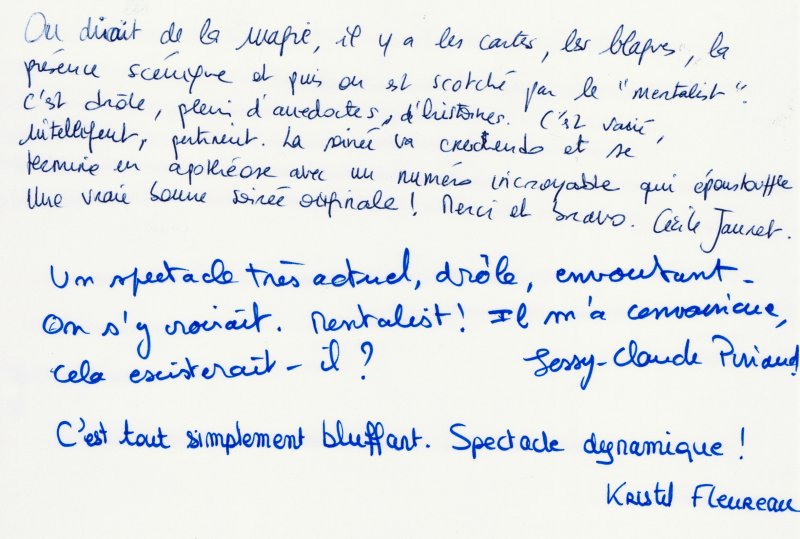 On dirait de la magie, il y a les cartes, les blagues, la
présence scénique et puis on est scotché par le "mentalist".
C'est drôle, plein d'anedoctes, d'histoires. C'est varié,
intelligent, pertinent. La soirée va crescendo et se
termine en apothéose avec un numéro incroyable qui époustouffle
Une vraie bonne soirée originale ! Merci et bravo. Cécile
Un spectacle très actuel, drôle, envoutant -
On s'y croirait. Mentalist ! Il m'a convaincue,
cela existerait - il ?
Jessy-Claude
C'est tout simplement bluffant. Spectacle dynamique !
Kristel Fleureau